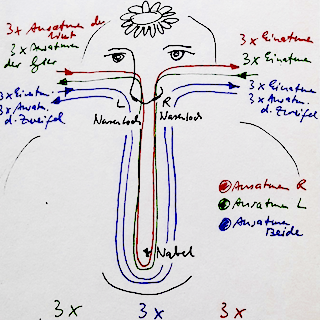 3x Ausatmen der
Wut
3x Ausatmen
der Gier
3x Einatm.
3x Ausatm.
d. Zweifel
3x Einatmen
3x Einatmen
3x Einatmen
3x Ausatm.
d. Zweifel
L
R
Nasenloch
Nasenloch
Ausatmen R
Ausatmen L
Ausatmen
Beide
Nabel
3x
3x
3x